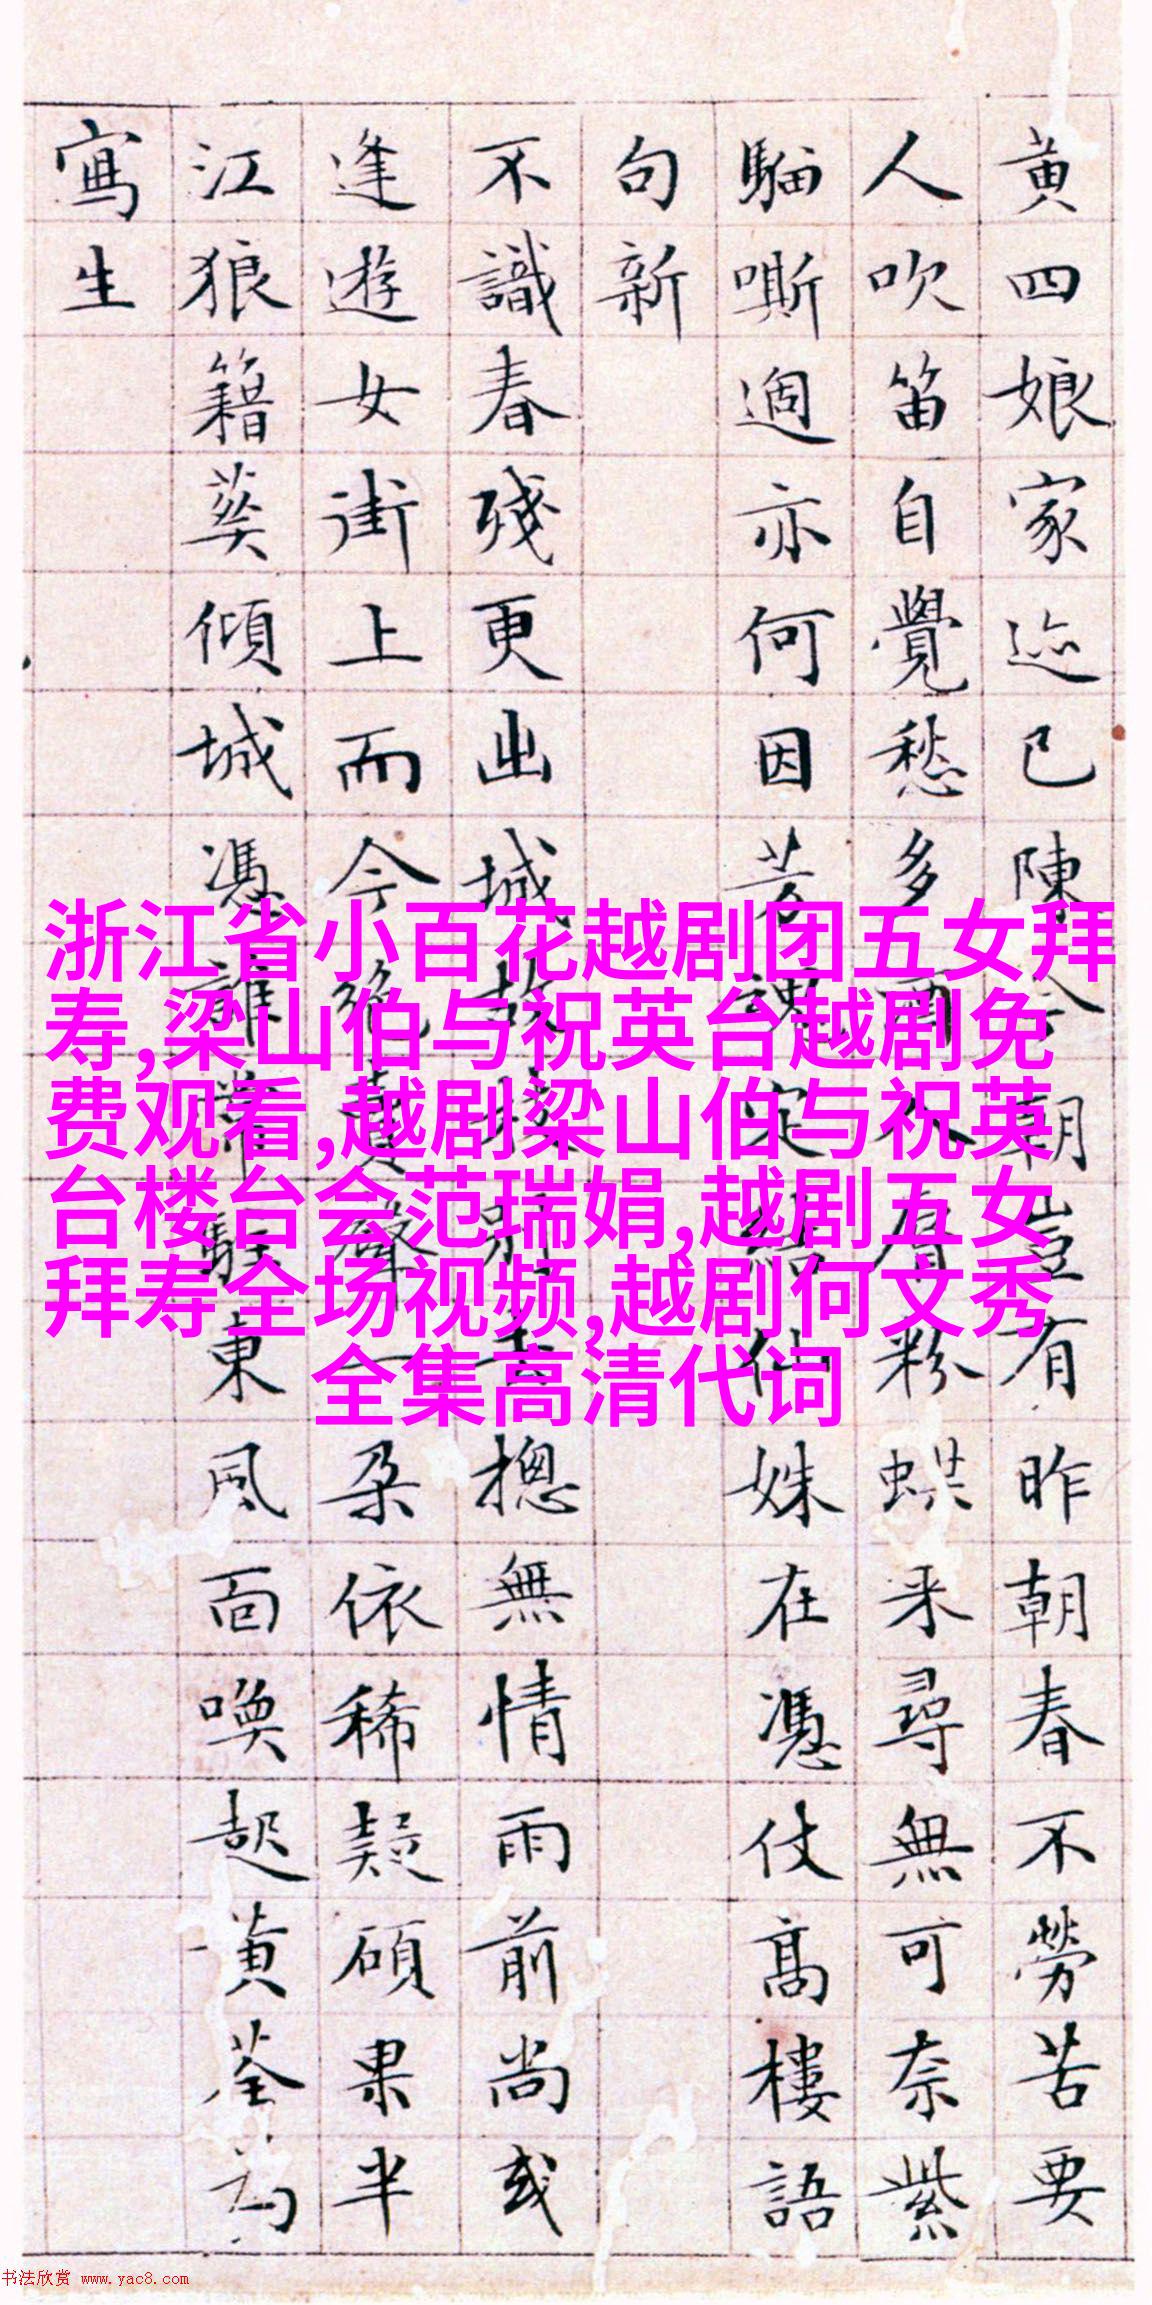 黄四娘家迹已陳今朝豈有昨朝春不勞苦要
人吹笛自覺愁多粉来尋無可奈紫
騮嘶過亦何因芳魂定結仙姝在憑仗高樓語
句新
不識春殘更出城故枝別揔無情雨前尚或
逢遊女街上而今絶賣聲一朶依稀疑碩果半
江狼籍葬傾城憑誰常駐東風面喚起黄荃為
寫生
浙江省小百花越剧团五女拜
寿,梁山伯与祝英台越剧免
费观看,越剧梁山伯与祝英
台楼台会范瑞娟,越剧五女
拜寿全场视频,越剧何文秀
全集高清代词
书法欣赏 www.yac8.com